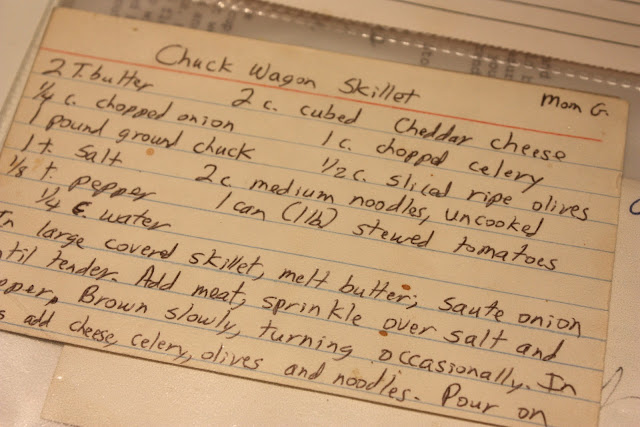 Chuck Wagon Skillet
Mom G.
2 T. butter
2 c. cubed Cheddar cheese
1/4 c. chopped onion
1 c. chopped celery
1 pound ground chuck
1/2 c. sliced ripe olives
1 t. salt
2 c. medium noodles, uncooked
1/8 t. pepper
1 can (1 lb) stewed tomatoes
1/4 c. water
In large coverd skillet, melt butter; saute onion
til tender. Add meat, sprinkle over salt and
epper. Brown slowly, turning occasionally. In
s add cheese, celery, olives and noodles. Pour on